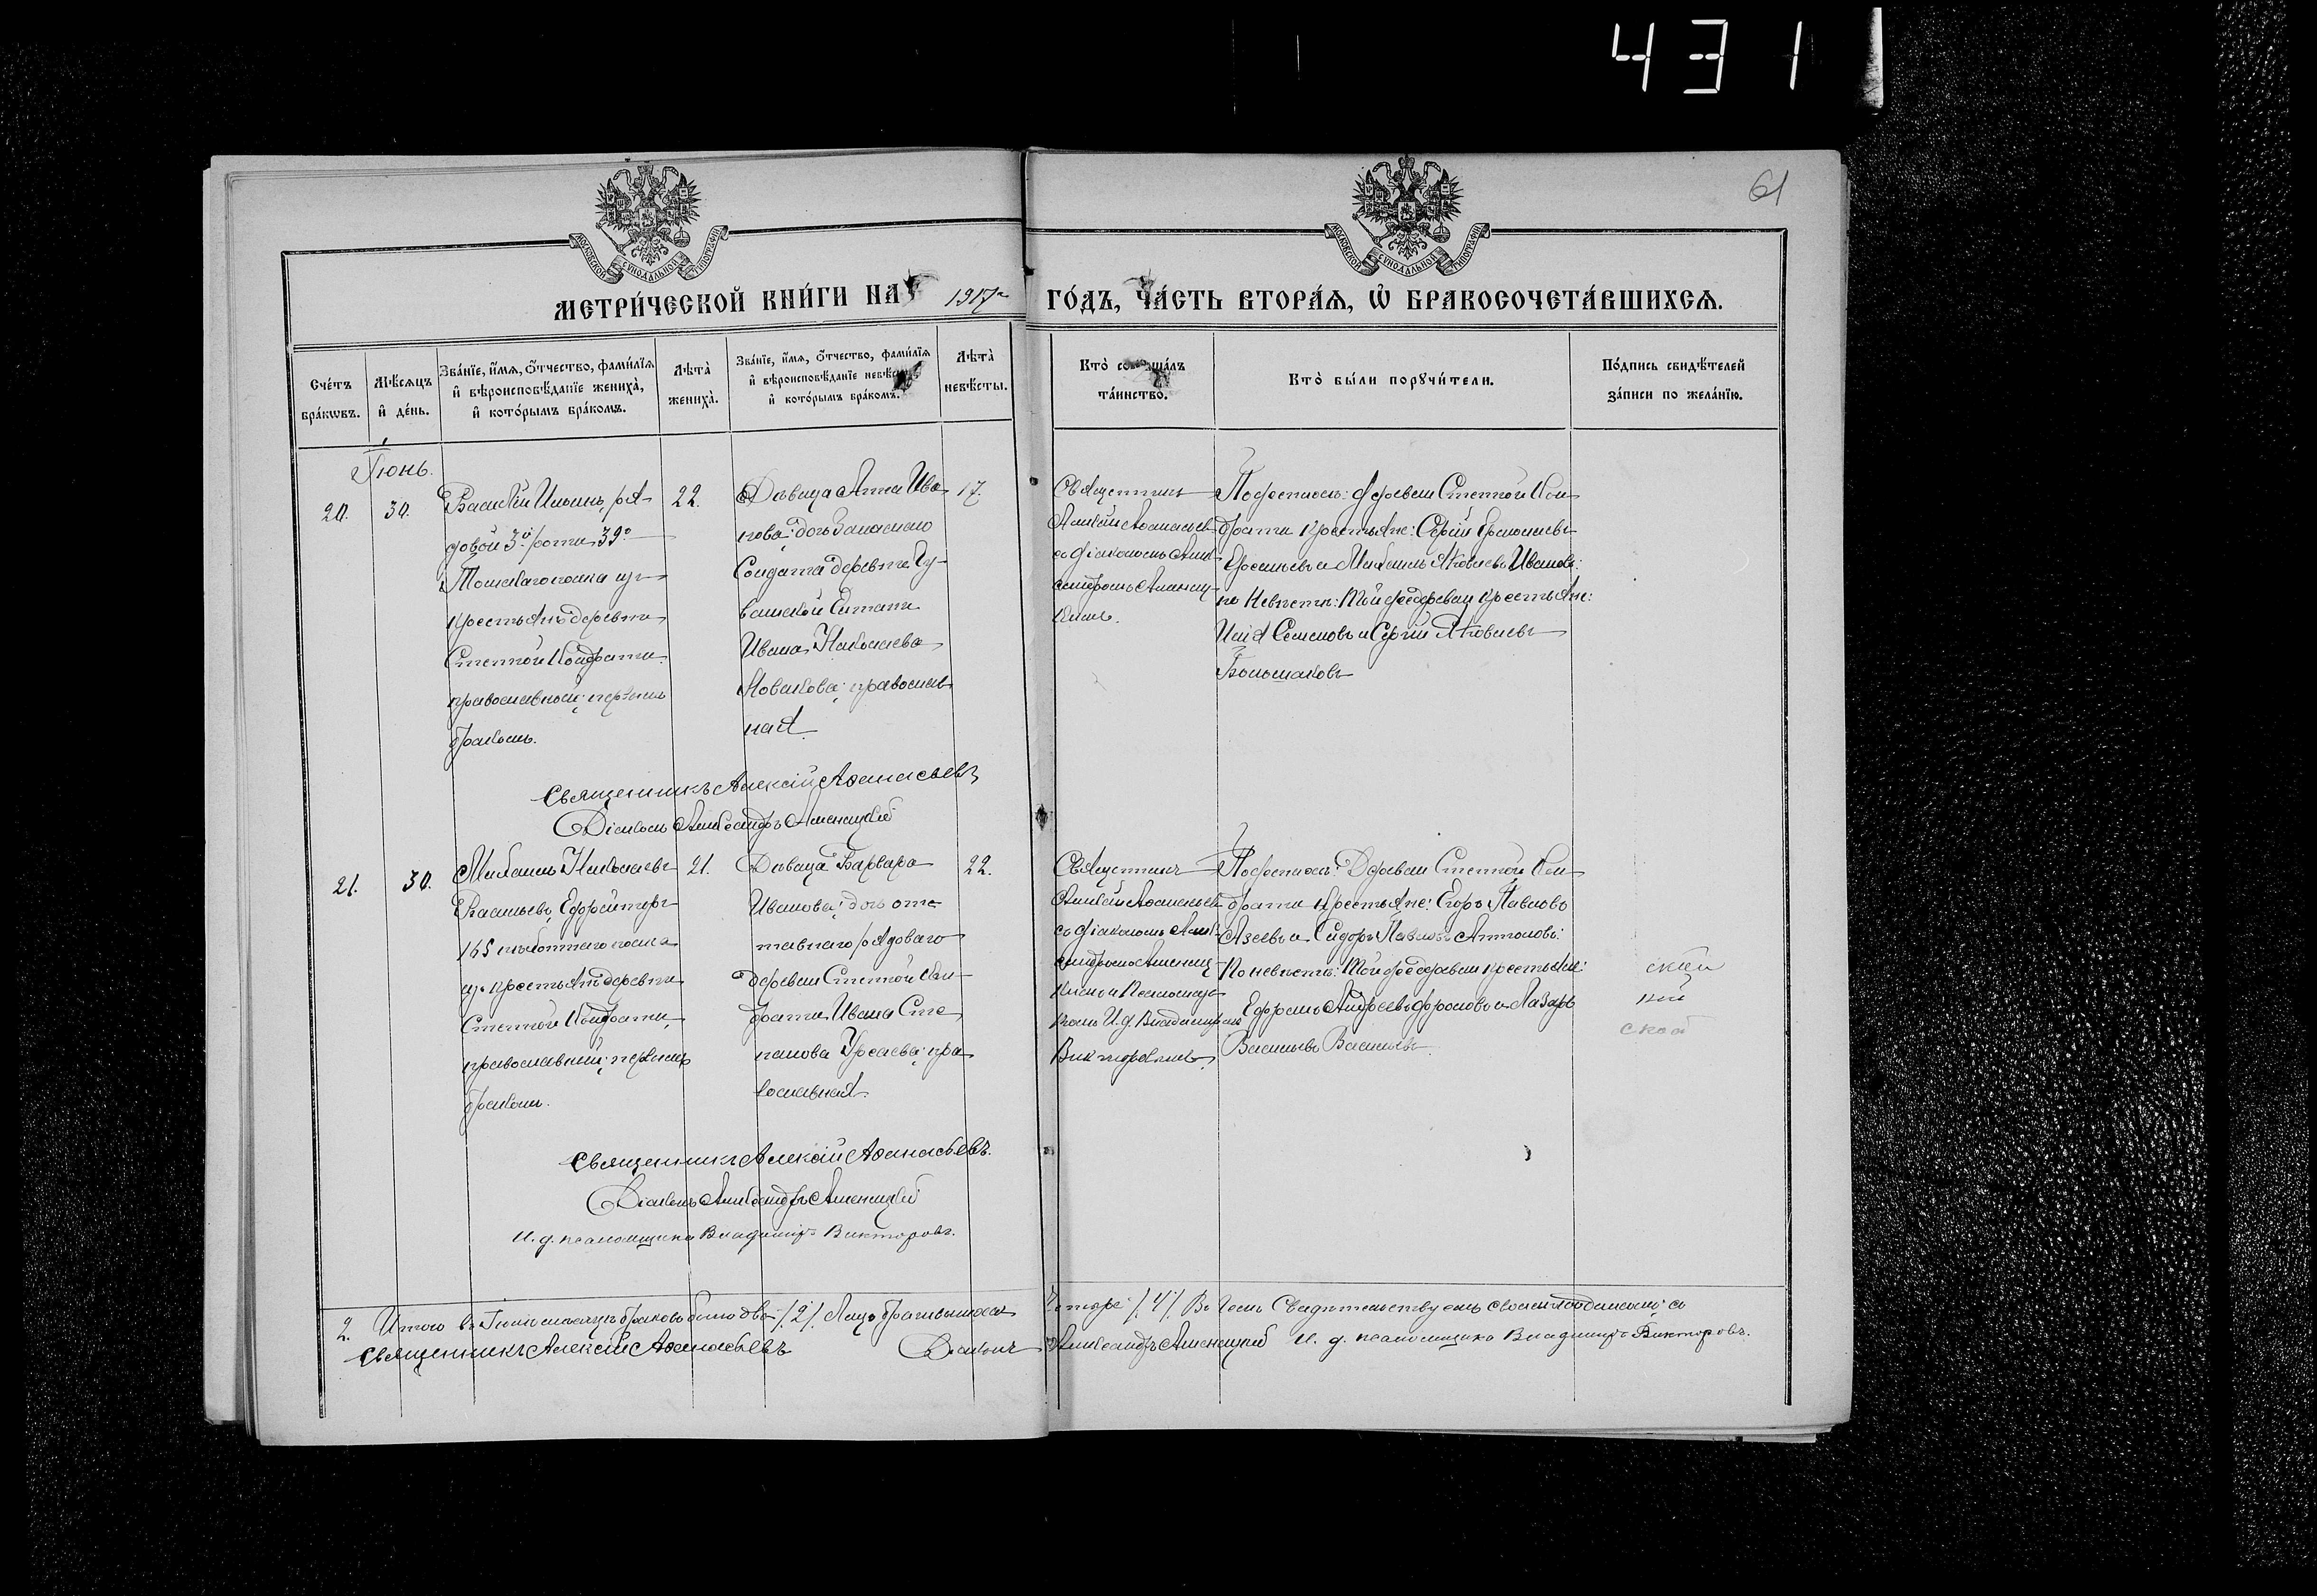 431
61
МОСКОВСКОЙ СѴНОДАЛЬНОЙ ТИПОГРАФІИ
МОСКОВСКОЙ СѴНОДАЛЬНОЙ ТИПОГРАФІИ
МЕТРИ́ЧЕСКОЙ КНИ́ГИ НА 1917 г. ГО́ДЪ, ЧА́СТЬ ВТОРА́Я, Ѽ БРАКОСОЧЕТА́ВШИХСѦ.
Сче́тъ бра́кѡвъ.
Мѣ́сѧцъ и҆ де́нь.
Зва́нїе, и҆́мѧ, ѻ҆́тчество, фами́лїѧ и҆ вѣроисповѣ́данїе жениха̀, и҆ кото́рымъ бра́комъ.
Лѣта̀ жениха̀.
Зва́нїе, и҆́мѧ, ѻ҆́тчество, фами́лїѧ и҆ вѣроисповѣ́данїе невѣ́сты и҆ кото́рымъ бра́комъ.
Лѣта̀ невѣ́сты.
Кто̀ соверша́лъ та́инство.
Кто̀ бы́ли порꙋчи́тели.
По́дпись свидѣ́телей за́писи по жела́нїю.
Іюнь.
20.
30.
Василій Ильинъ, ря-
довой 3й роты 39го
Томскаго полка изъ
крестьянъ деревни
Степной
православный; первымъ
бракомъ.
22.
Дѣвица Анна Ива-
нова; дочь запаснаго
Солдата деревни Чу-
вашской
Ивана Николаева
Новикова; православ-
ная
17.
Священникъ
Алексій Аѳанасьевъ
съ діакономъ Алек-
сандромъ Амениц-
кимъ.
По женихѣ: деревни Степной
крестьяне: Сергій
и Михаилъ Яковлевъ Ивановъ:
по невѣстѣ: той же деревни крестьяне:
Илія Семеновъ и Сергій Яковлевъ
Большаковъ
Священникъ Алексій Аѳанасьевъ
Діаконъ Александръ Аменицкій
21.
30.
Михаилъ Николаевъ
Васильевъ, Ефрейторъ
165 пѣхотнаго полка
изъ крестьянъ деревни
Степной
православный; первымъ
бракомъ.
21.
Дѣвица Варвара
Иванова; дочь отс-
тавнаго рядоваго
деревни Степной
Ивана Сте-
панова; пра-
вославная
22.
Священникъ
Алексій Аѳанасьевъ
съ діакономъ Алек-
сандромъ Амениц-
кимъ и Псаломщи-
комъ И. д. Владиміромъ
Викторовымъ.
По женихѣ: Деревни Степной
крестьяне: Егоръ Павловъ
и Сидоръ Павловъ Антоновъ:
По невѣстѣ: той же деревни крестьяне:
Ефремъ Андреевъ Фроловъ и Лазарь
Васильевъ Васильевъ.
Священникъ Алексій Аѳанасьевъ.
Діаконъ Александръ Аменицкій
И. д. псаломщика Владиміръ Викторовъ.
2. Итого въ Іюнѣ мѣсяцѣ браковъ было два /2/. Лицъ бравшихся четыре /4/. Въ чемъ Свидѣтельствуемъ своимъ подписомъ:
Священникъ Алексій Аѳанасьевъ Діаконъ Александръ Аменицкій И. д. псаломщика Владиміръ Викторовъ.